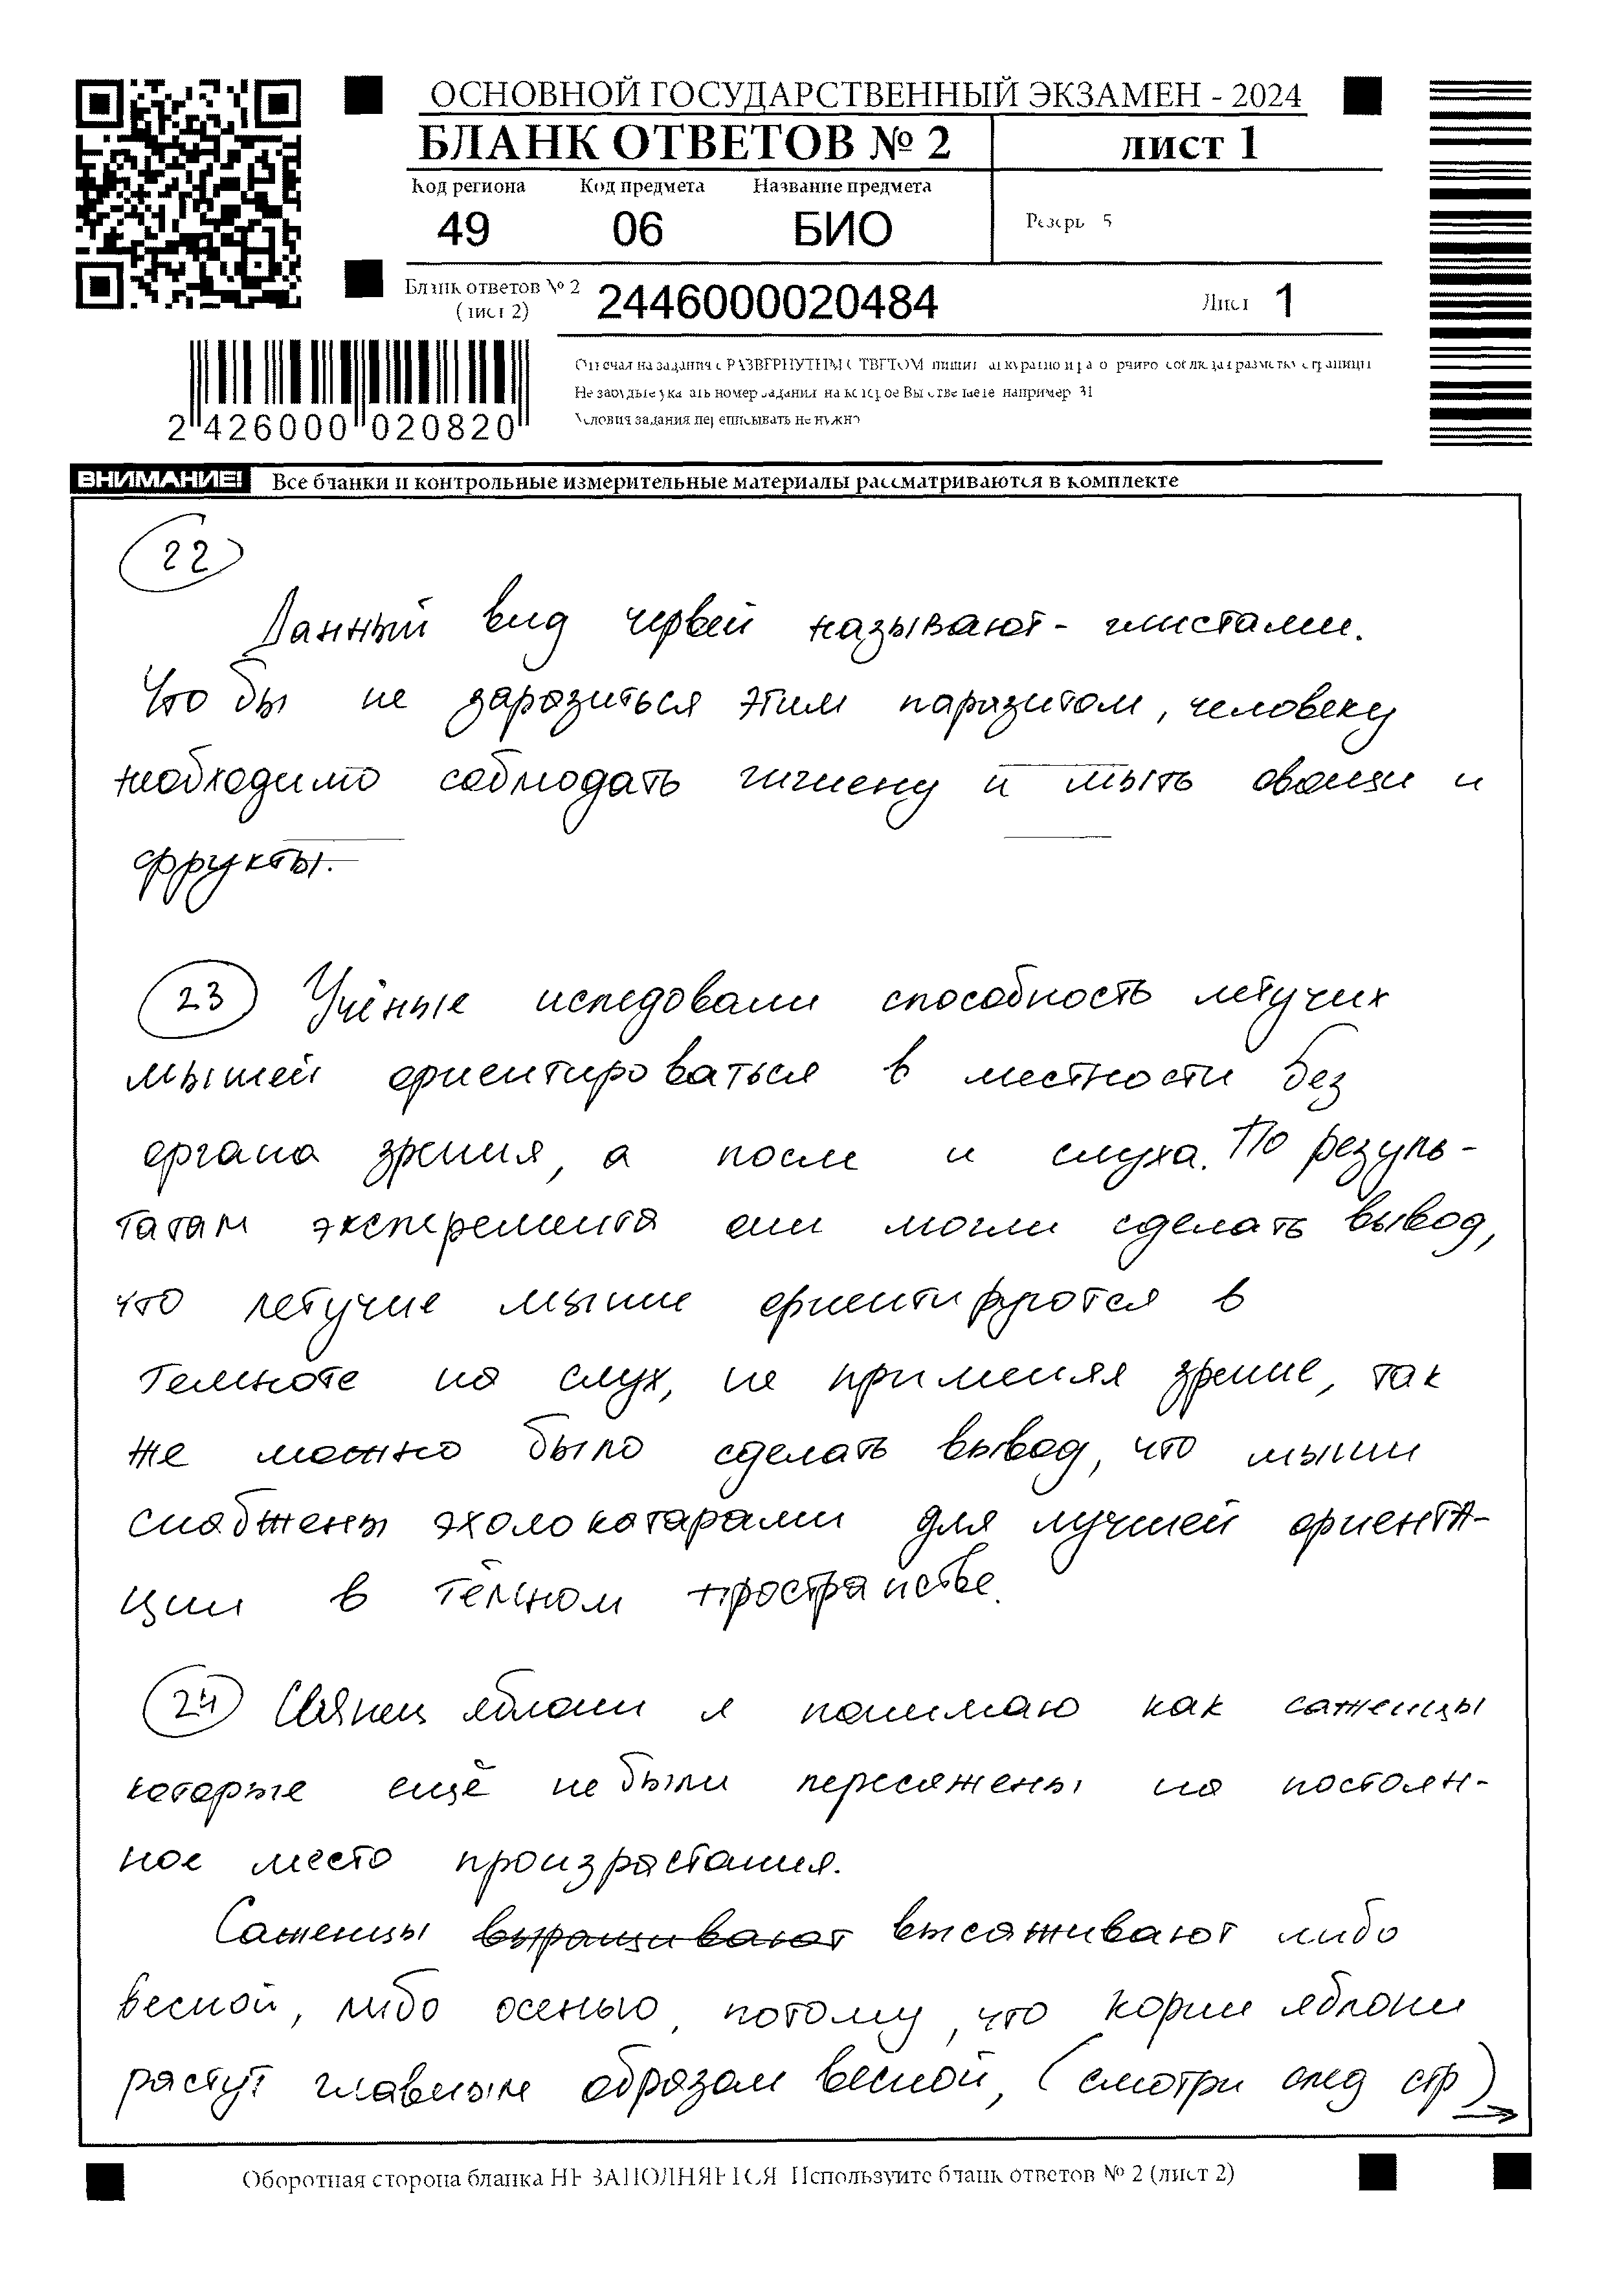 ОСНОВНОЙ ГОСУДАРСТВЕННЫЙ ЭКЗАМЕН - 2024
БЛАНК ОТВЕТОВ № 2
лист 1
Код региона Код предмета Название предмета
49 06 БИО
Резерв 5
Бланк ответов № 2
(лист 2)
2446000020484
Лист 1
2 426000 020820
Отвечая на задания с РАЗВЕРНУТЫМ ОТВЕТОМ пишите аккуратно и разборчиво соблюдая разметку страницы
Не забудьте указать номер задания на который Вы отвечаете например 31
Условия задания переписывать не нужно
ВНИМАНИЕ! Все бланки и контрольные измерительные материалы рассматриваются в комплекте
22
Данный вид червей называют - глистами.
Что бы не заразиться этим паразитом, человеку
необходимо соблюдать гигиену и мыть овощи и
фрукты.
23 Учёные иследовали способность летучих
мышей ориентироваться в местности без
органа зрения, а после и слуха. По резуль-
татам эксперемента они могли сделать вывод,
что летучие мыши ориентируются в
темноте на слух, не применяя зрение, так
же можно было сделать вывод, что мыши
снабжены эхолокатарами для лучшей ориента-
ции в тёмном пространстве.
24 яблони я понимаю как саженцы
которые ещё не были пересажены на постоян-
ное место произрастания.
Саженцы выращивают высаживают либо
весной, либо осенью, потому, что корни яблони
растут главным образом весной, (смотри след стр)
Оборотная сторона бланка НЕ ЗАПОЛНЯЕТСЯ Используйте бланк ответов № 2 (лист 2)